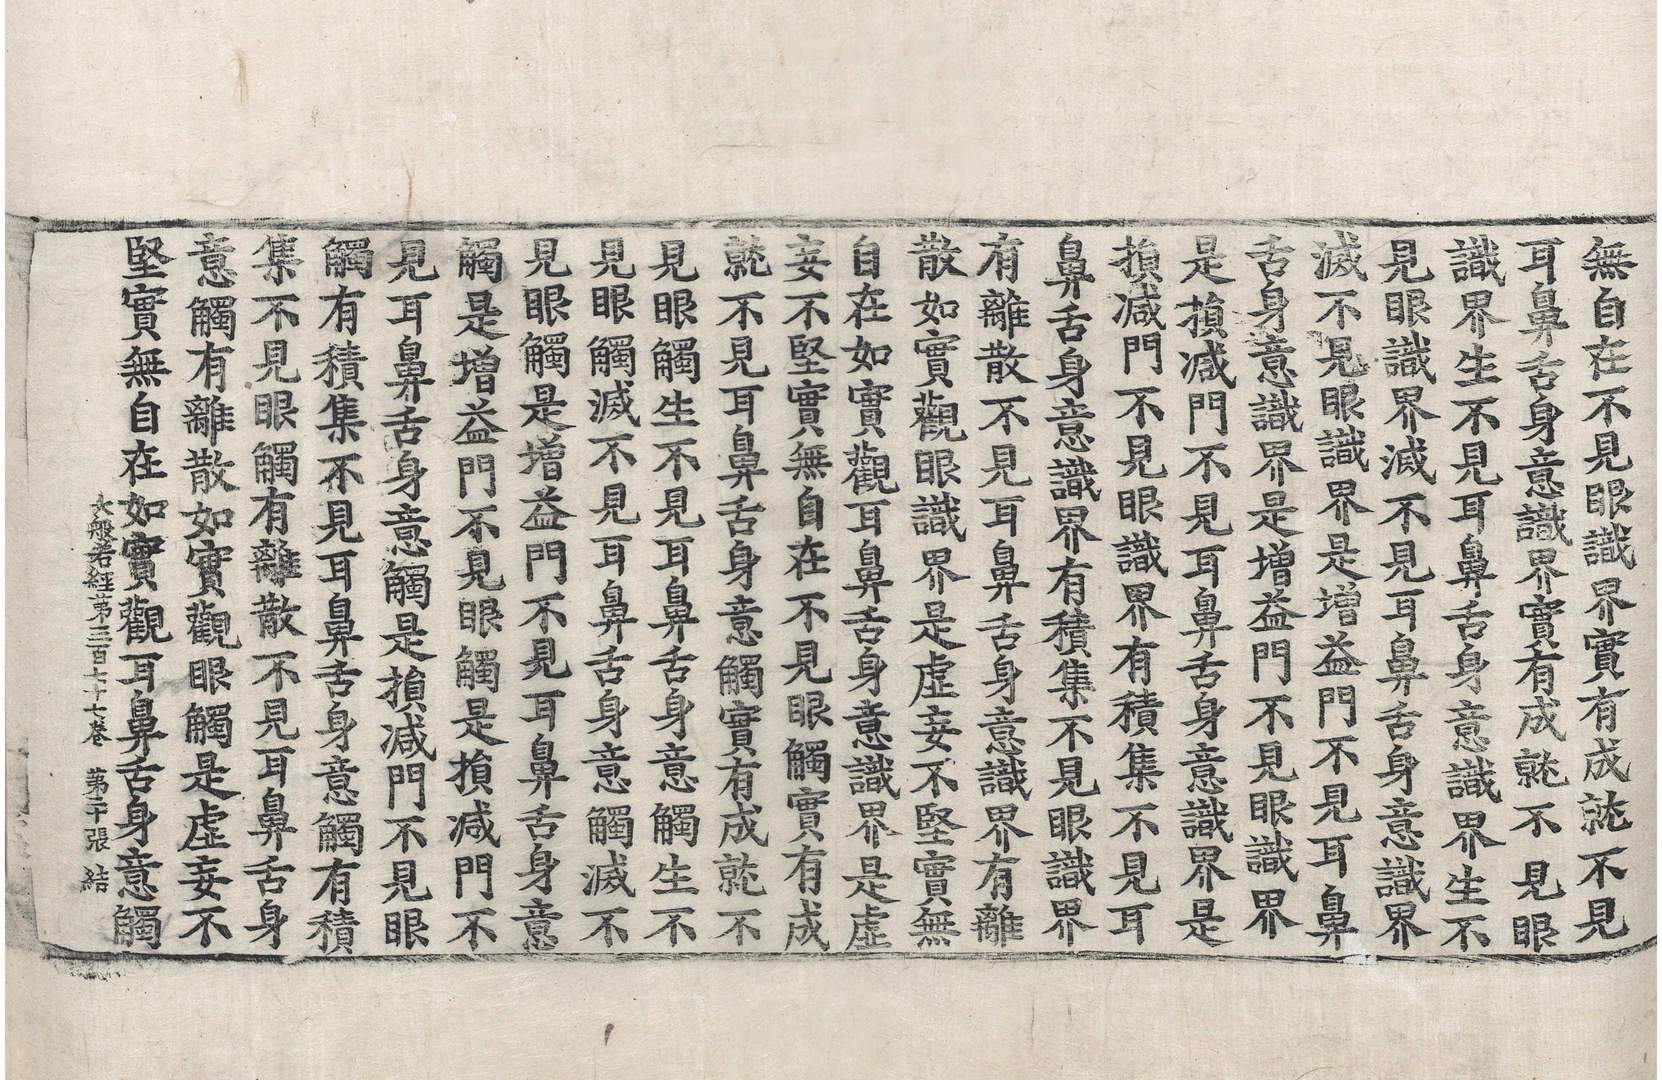 無自在不見眼識界實有成就不見
耳鼻舌身意識界實有成就不見眼
識界生不見耳鼻舌身意識界生不
見眼識界滅不見耳鼻舌身意識界
滅不見眼識界是增益門不見耳鼻
舌身意識界是增益門不見眼識界
是損减門不見耳鼻舌身意識界是
損减門不見眼識界有積集不見耳
鼻舌身意識界有積集不見眼識界
有離散不見耳鼻舌身意識界有離
散如實觀眼識界是虛妄不堅實無
自在如實觀耳鼻舌身意識界是虛
妄不堅實無自在不見眼觸實有成
就不見耳鼻舌身意觸實有成就不
見眼觸生不見耳鼻舌身意觸生不
見眼觸滅不見耳鼻舌身意觸滅不
見眼觸是增益門不見耳鼻舌身意
觸是增益門不見眼觸是損减門不
見耳鼻舌身意觸是損减門不見眼
觸有積集不見耳鼻舌身意觸有積
集不見眼觸有離散不見耳鼻舌身
意觸有離散如實觀眼觸是虛妄不
堅實無自在如實觀耳鼻舌身意觸
大般若經第三百七十七卷 第二十張 結